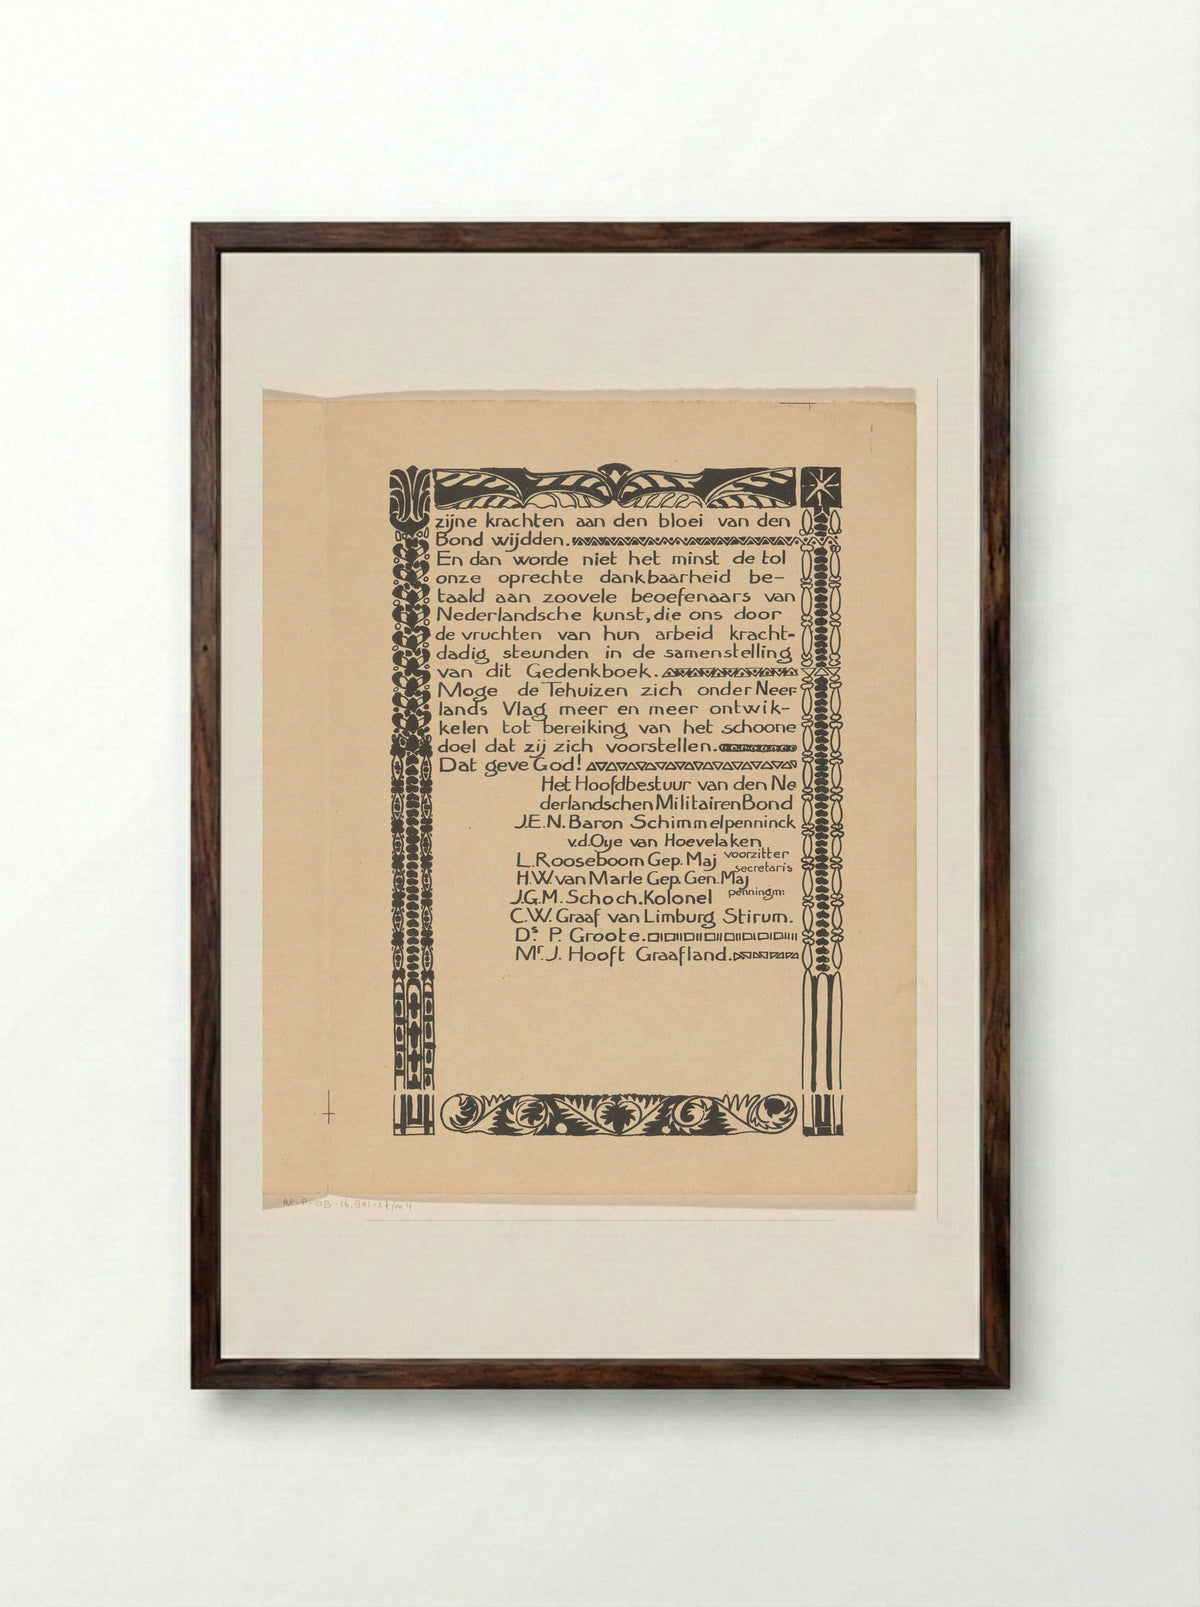 zijne krachten aan den bloei van den
Bond wijdden.
En dan worde niet het minst de tol
onze oprechte dankbaarheid be-
taald aan zoovele beoefenaars van
Nederlandsche kunst, die ons door
de vruchten van hun arbeid kracht-
dadig steunden in de samenstelling
van dit Gedenkboek.
Moge de Tehuizen zich onder Neer-
lands Vlag meer en meer ontwik-
kelen tot bereiking van het schoone
doel dat zij zich voorstellen.
Dat geve God!
Het Hoofdbestuur van den Ne
derlandschen Militairen Bond
J.E.N. Baron Schimmelpenninck
v.d. Oye van Hoevelaken
voorzitter
L. Rooseboom Gep. Maj
secretaris
H.W. van Marle Gep. Gen. Maj
penningm:
J.G.M. Schoch. Kolonel
C.W. Graaf van Limburg Stirum.
Ds. P. Groote.
Mr. J. Hooft Graafland.